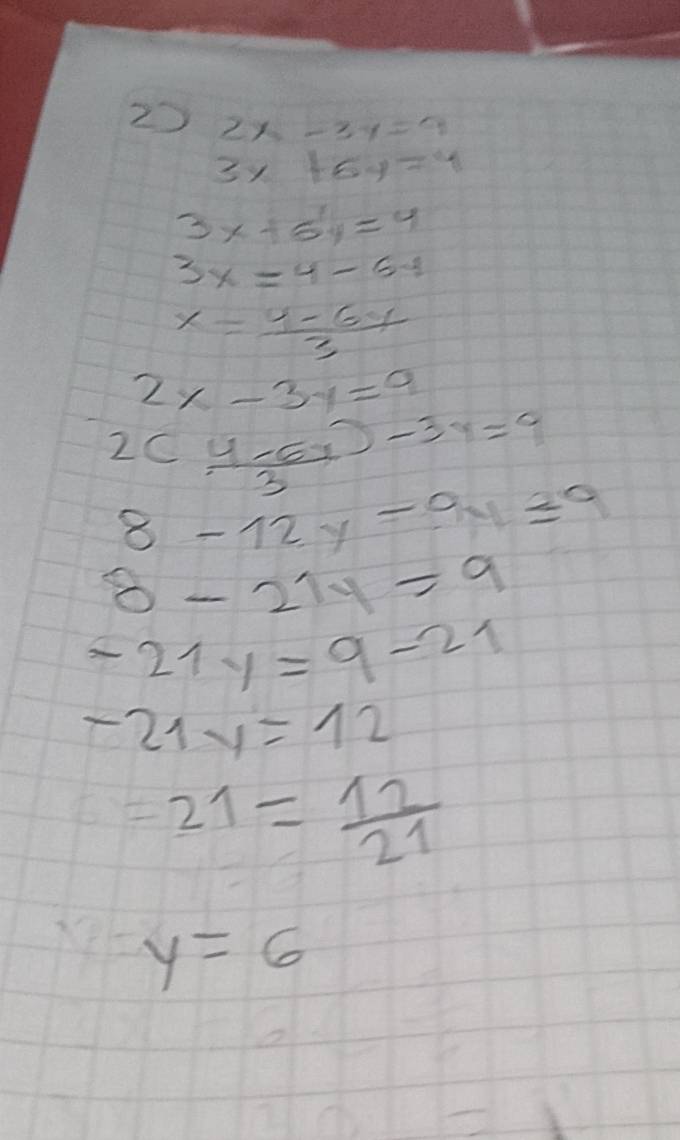 2) 2x - 3y = 9
3x + 6y = 4
3x + 6y = 4
3x = 4 - 6y
x = \frac{4 - 6y}{3}
2x - 3y = 9
2(\frac{4 - 6y}{3}) - 3y = 9
8 - 12y - 9y = 9
8 - 21y = 9
-21y = 9 - 21
-21y = 12
= 21 = \frac{12}{21}
y = 6